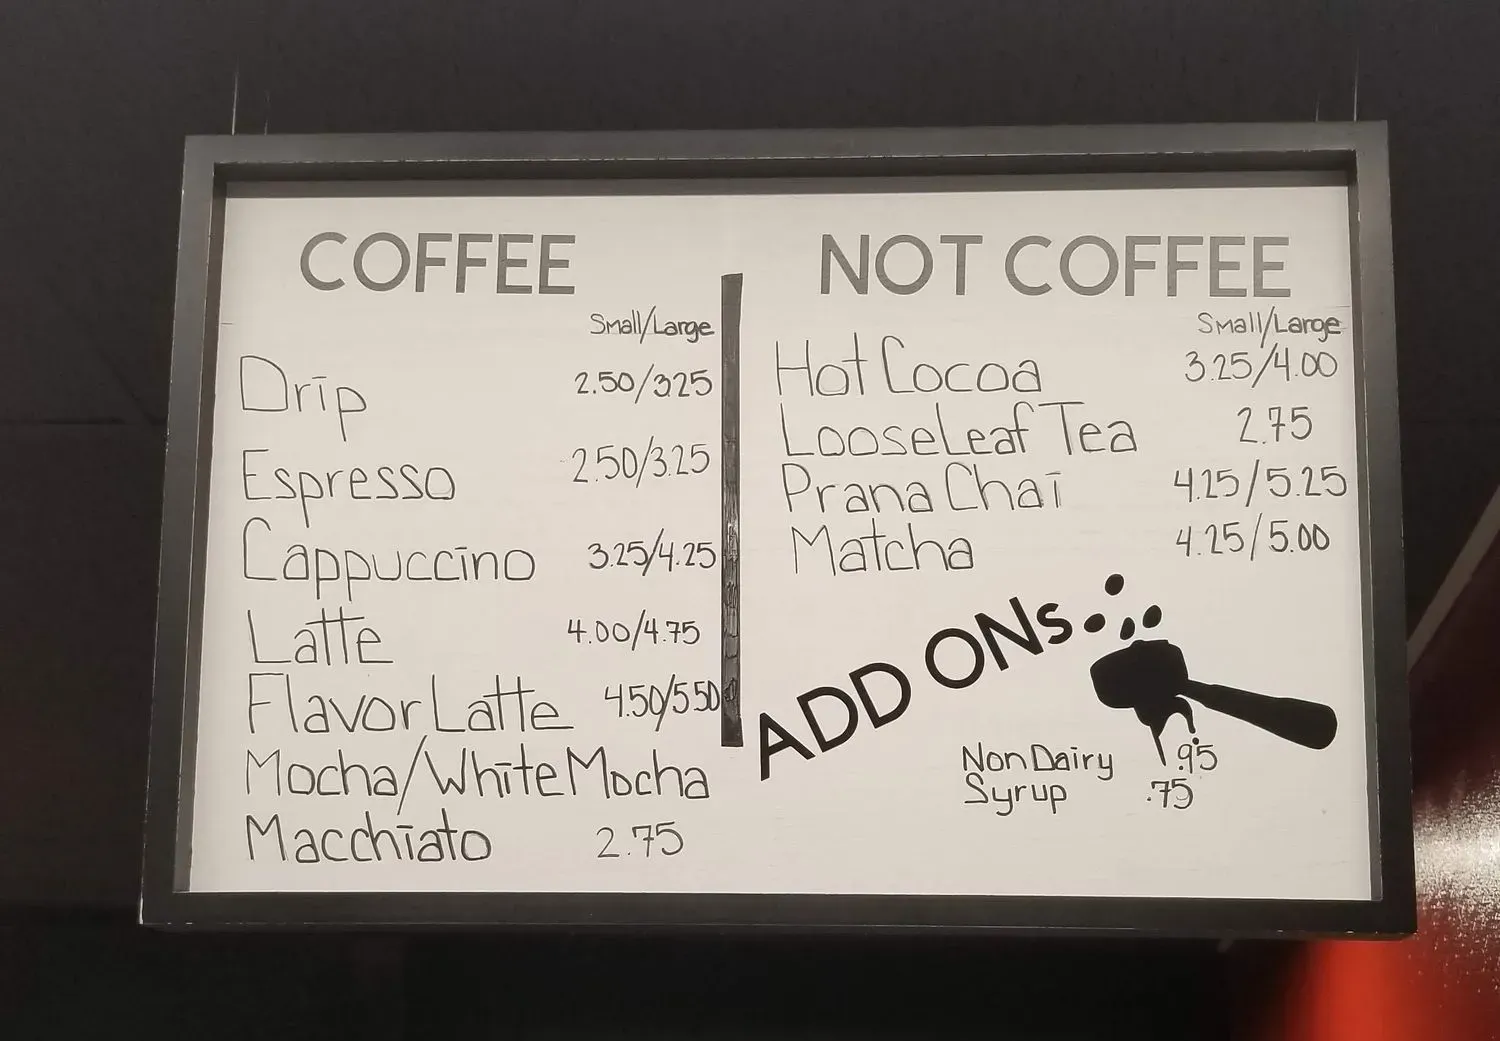 COFFEE
Small/Large
Drip 2.50/3.25
Espresso 2.50/3.25
Cappuccino 3.25/4.25
Latte 4.00/4.75
Flavor Latte 4.50/5.50
Mocha/White Mocha
Macchiato 2.75
NOT COFFEE
Small/Large
Hot Cocoa 3.25/4.00
Loose Leaf Tea 2.75
Prana Chai 4.25/5.25
Matcha 4.25/5.00
ADD ONs
Non Dairy .95
Syrup .75